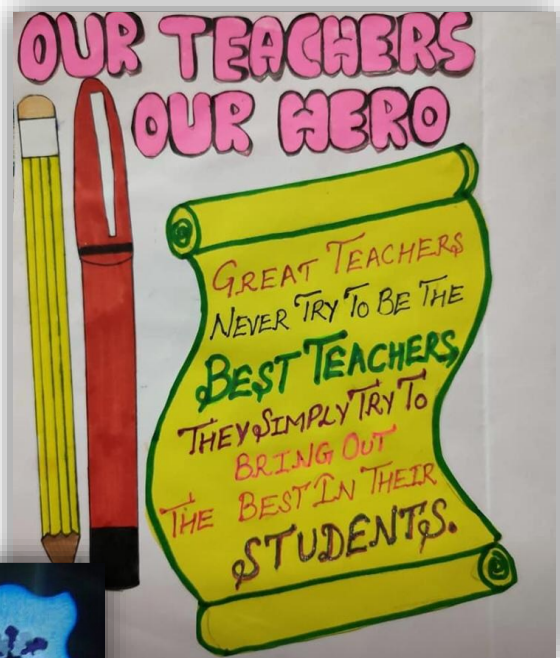 OUR TEACHERS
OUR HERO
GREAT TEACHERS
NEVER TRY TO BE THE
BEST TEACHERS,
THEY SIMPLY TRY TO
BRING OUT
THE BEST IN THEIR
STUDENTS.